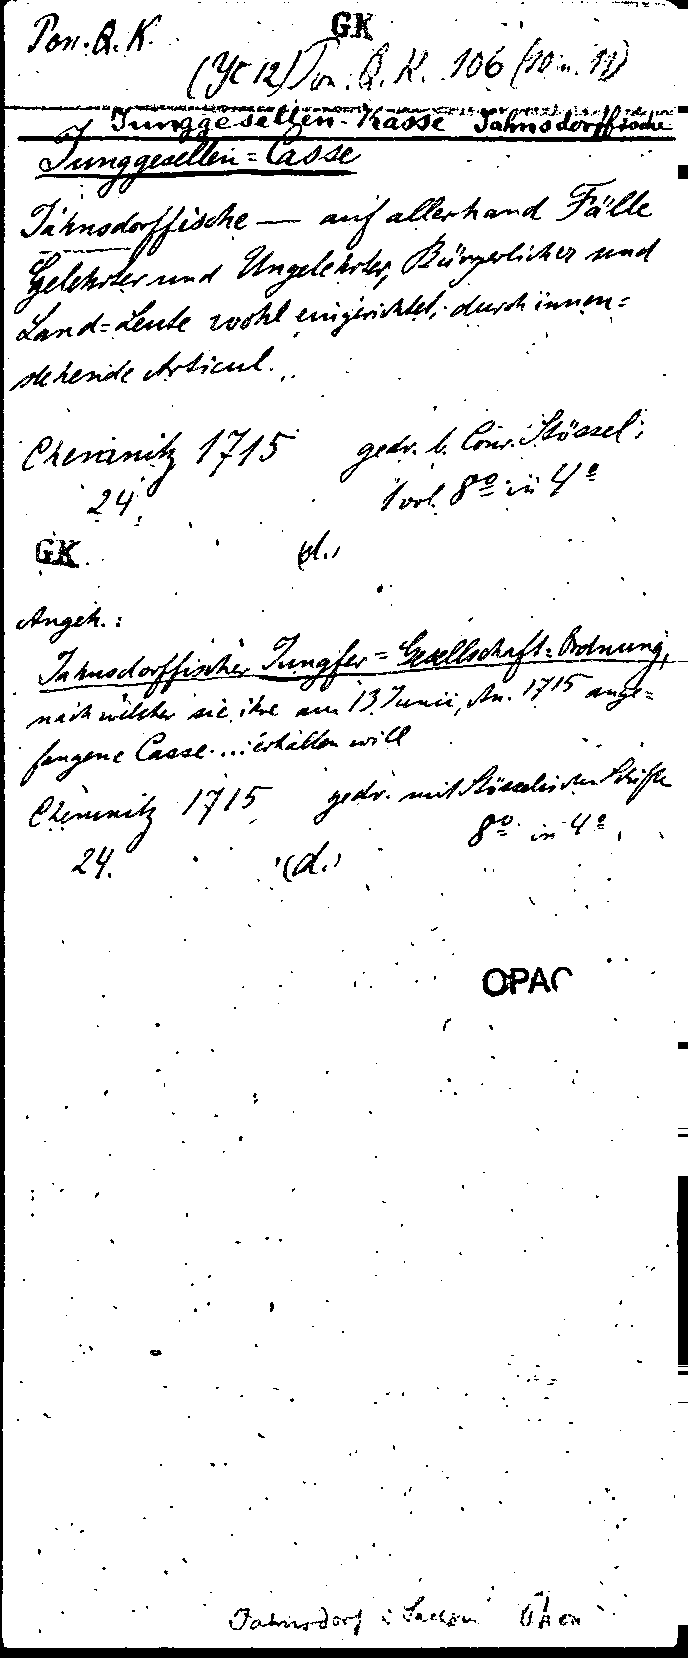 Pon. Q. K.
GK
(Yc 12) Pon. Q. K. 106 (10 u. 11)
Junggesellen-Kasse Jahnsdorffische
Junggesellen=Casse
Jahnsdorffische — auf allerhand Fälle
Gelehrter und Ungelehrter, Bürgerlicher und
Land=Leute wohl eingerichtet, durch innen=
stehende Articul.
Chemnitz 1715 gedr. b. Conr. Stössel;
24. 1 vol. 8º in 4º
GK (d.)
Angeh.:
Jahnsdorffischer Jungfer=Gesellschaft=Ordnung,
nach welcher sie ihre am 13 Junii, An. 1715 ange=
fangene Casse ... erhalten will
Chemnitz 1715 gedr. mit Stösselischen Schriften
8º in 4º
24. (d.)
OPAC
Jahnsdorf i Sachsen